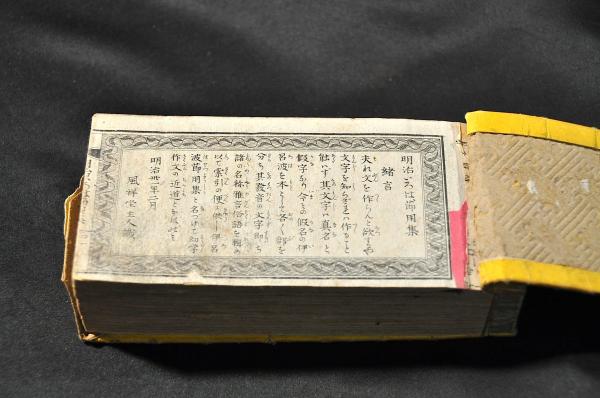 明治いろは節用集
緒言
夫れ文を作らんと欲するや
文字を知らざれば作ること
能はず其文字に真名と
假字あり今その假名の伊
呂波を本として各〻部を
分ち其發音の文字即ち
諸の名称雅言俗語を輯め
以て索引の便に供し伊呂
波節用集と名つけて初学
作文の近道とな
明治世年二月
風祥堂主人識